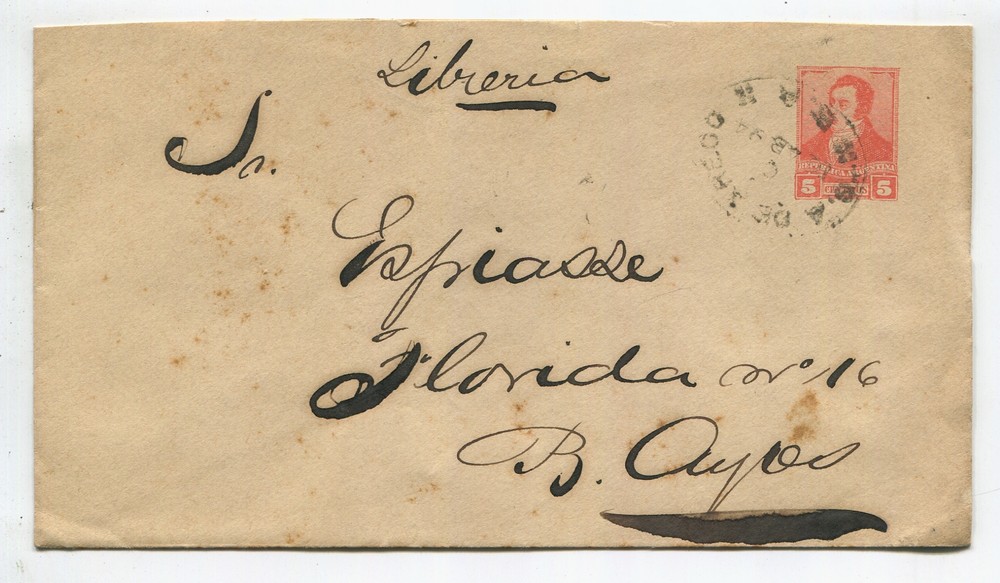 Libreria
Sr.
Espiasse
Florida No 16
B. Ayres
REPUBLICA ARGENTINA
5 CENTAVOS 5
DE ARECO